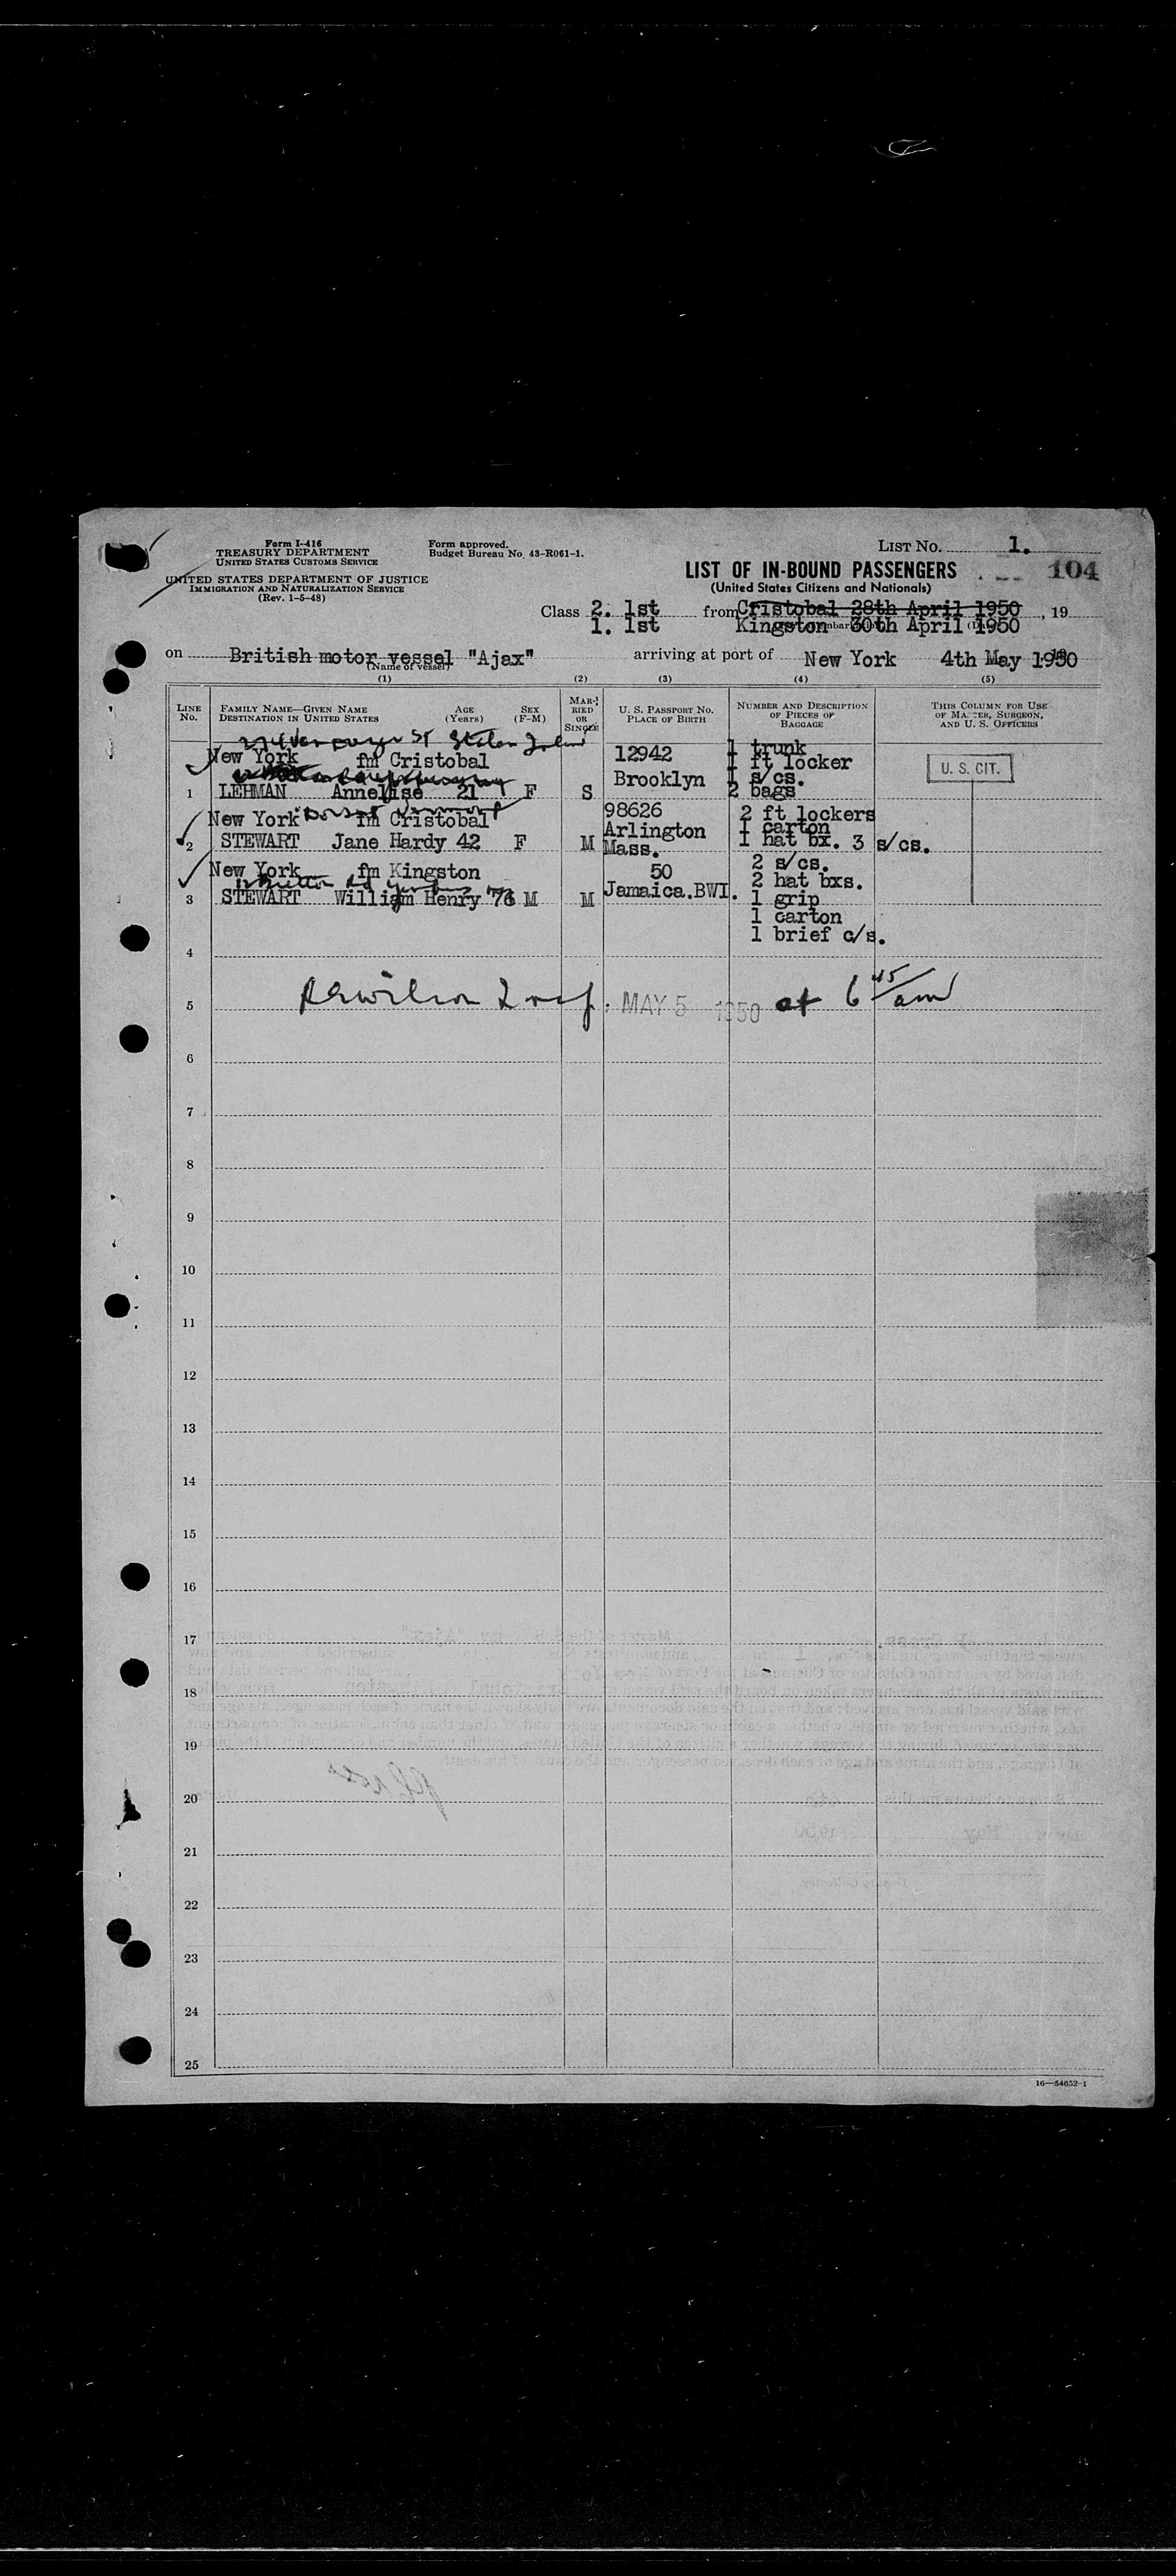 Form I-416
TREASURY DEPARTMENT
UNITED STATES CUSTOMS SERVICE
UNITED STATES DEPARTMENT OF JUSTICE
IMMIGRATION AND NATURALIZATION SERVICE
(Rev. 1-5-48)
Form approved.
Budget Bureau No. 43-R061-1.
LIST NO. 1.
LIST OF IN-BOUND PASSENGERS
104
(United States Citizens and Nationals)
Class 2. 1st from Cristobal 28th April 1950, 19
1. 1st Kingston 30th April 1950
on British motor vessel "Ajax" arriving at port of New York 4th May 1950
(Name of vessel)
(1) (2) (3) (4) (5)
LINE No.
FAMILY NAME—GIVEN NAME
DESTINATION IN UNITED STATES
AGE (Years)
SEX (F-M)
MARRIED OR SINGLE
U. S. PASSPORT NO.
PLACE OF BIRTH
NUMBER AND DESCRIPTION OF PIECES OF BAGGAGE
THIS COLUMN FOR USE OF MASTER, SURGEON, AND U. S. OFFICERS
New York fm Cristobal 12942 1 trunk
1 ft locker
U. S. CIT.
Brooklyn 1 s/cs.
1 LEHMAN Annelise 21 F S 2 bags
98626 2 ft lockers
New York Dorset Vermont fm Cristobal Arlington 1 carton
2 STEWART Jane Hardy 42 F M Mass. 1 hat bx. 3 s/cs.
New York fm Kingston 50 2 s/cs.
Jamaica.BWI. 2 hat bxs.
3 STEWART William Henry 76 M M 1 grip
1 carton
1 brief c/s.
4
5 MAY 5 1950 at 6 45/am
6
7
8
9
10
11
12
13
14
15
16
17
18
19
20
21
22
23
24
25
16—54652-1